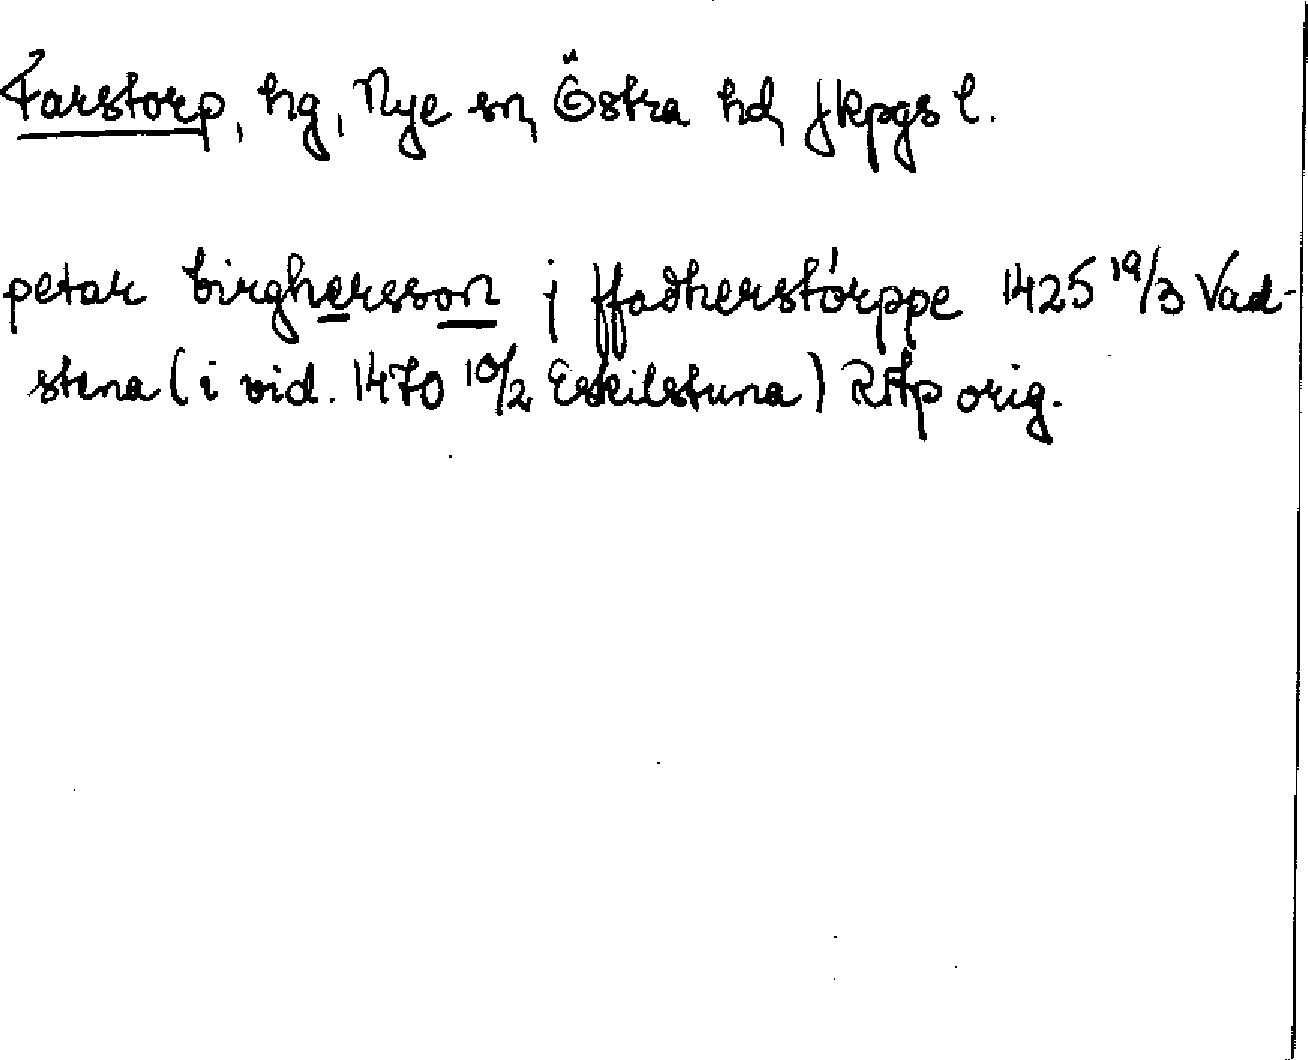 Farstorp, hg, Nye sn, Östra hd, Jkpgs l.
petar birghersson j ffadherstórppe 1425 19/3 Vad-
stena (i vid. 1470 10/2 Eskilstuna) RAp orig.